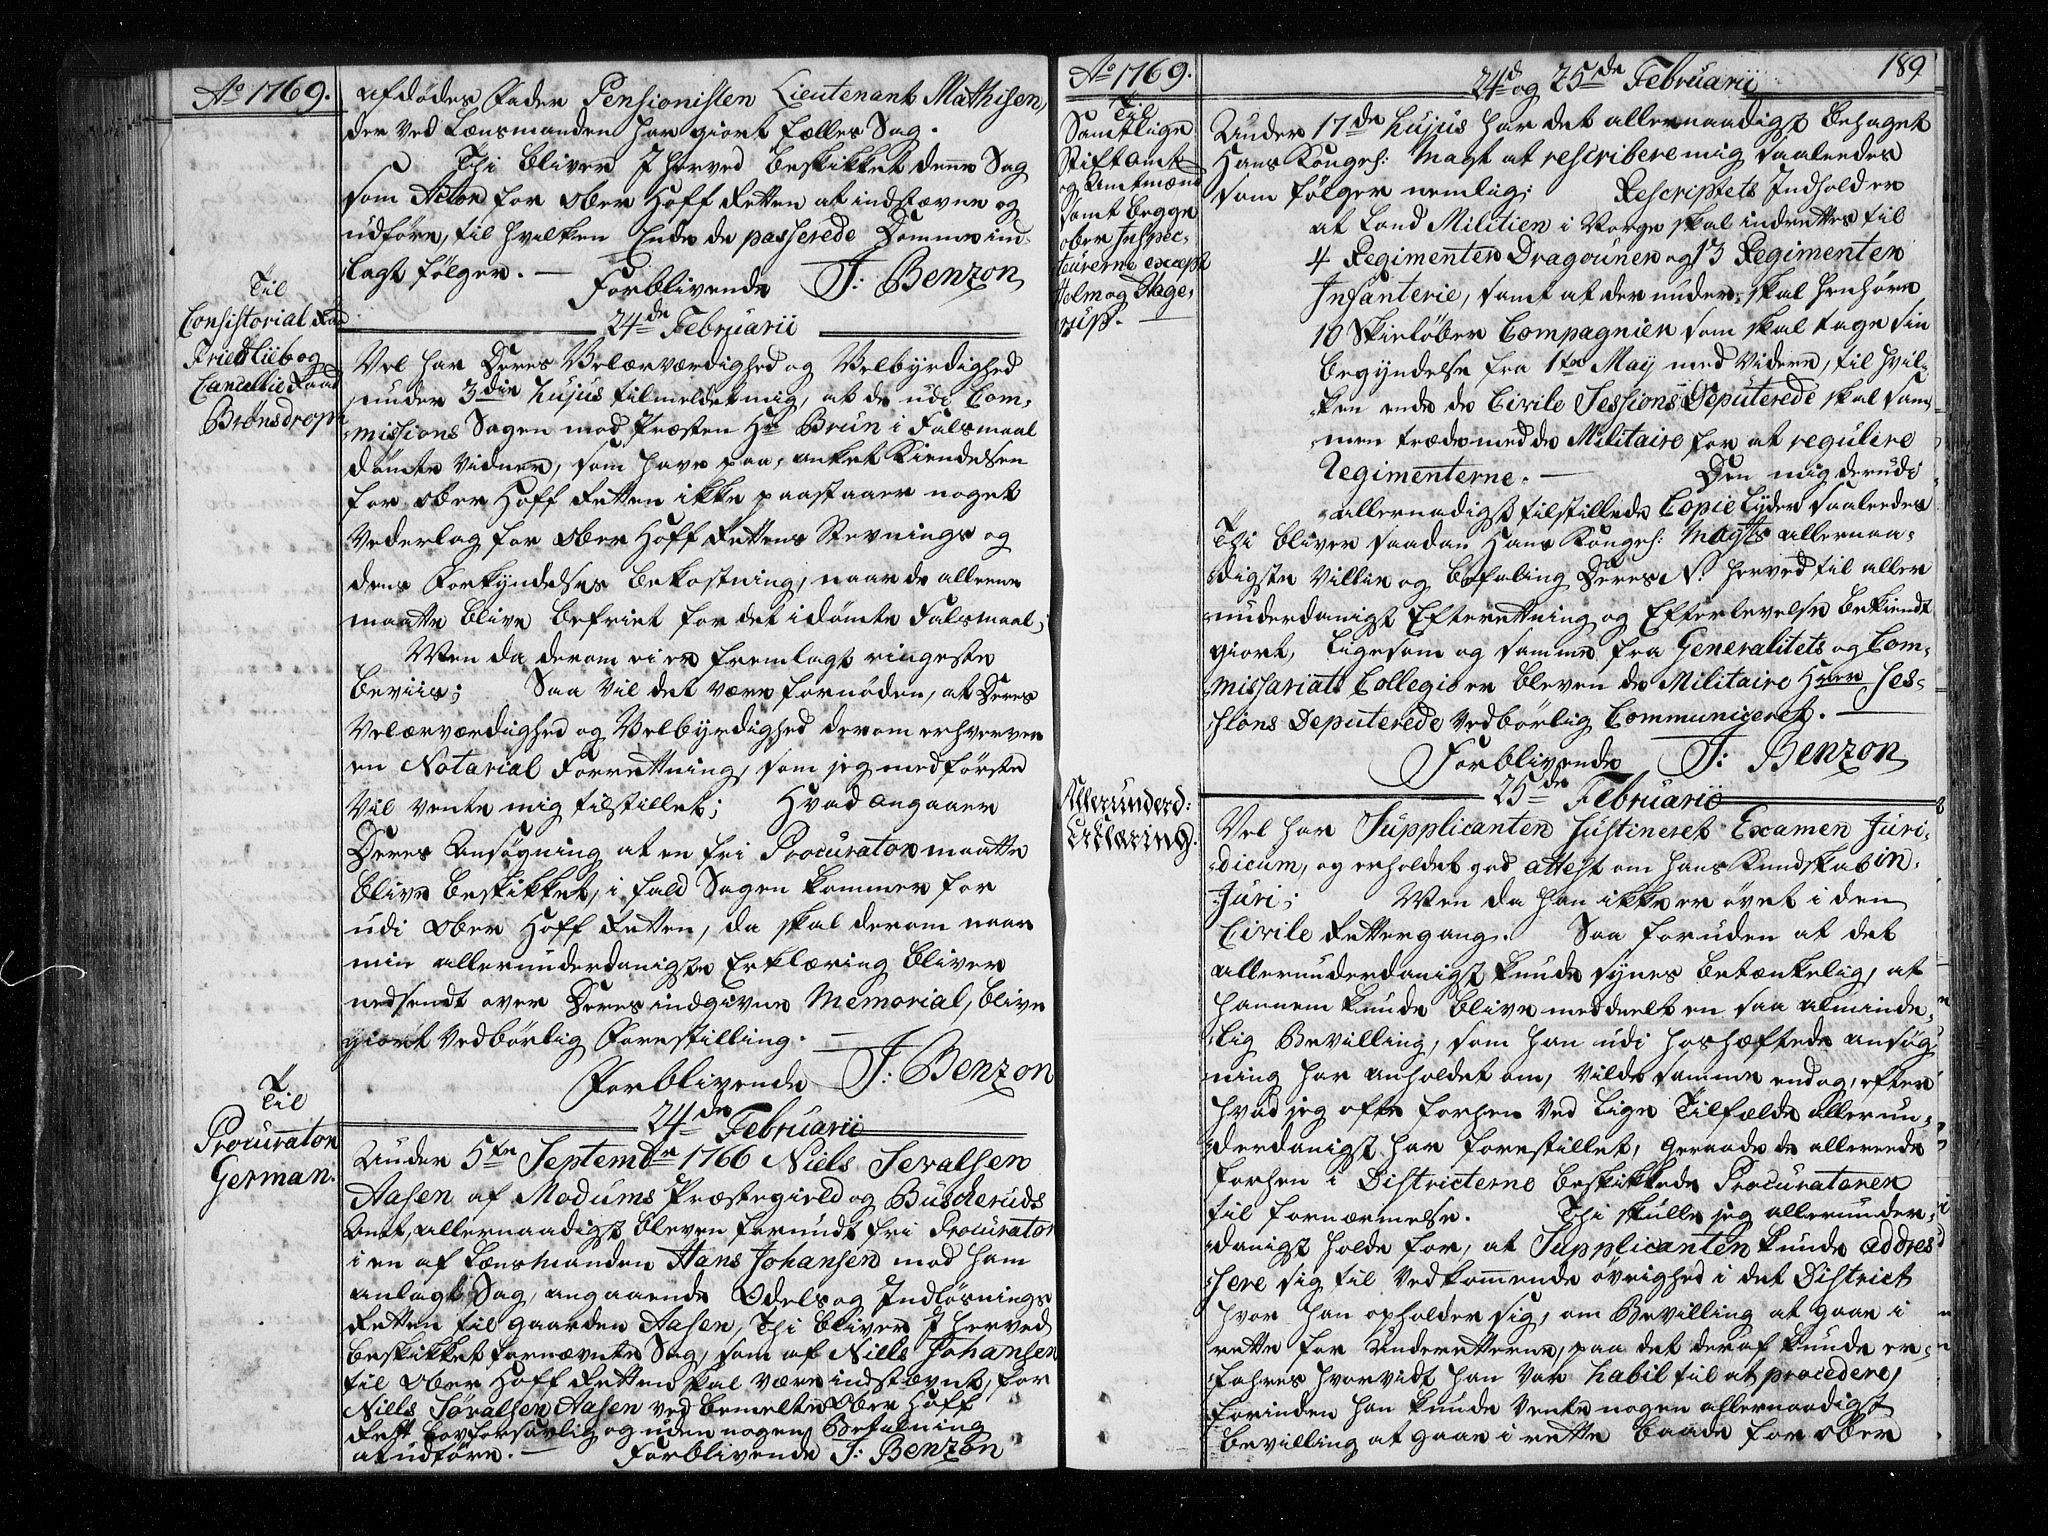 Ao 1769.
afdødes Fader Pensionisten Lieutenant Mathisen,
der ved Lensmanden har giort fælles Sag.
Thi bliver I herved beskikket denne Sag
som Actor for Ober Hoff Retten at indstævne og
udføre, til hvilken Ende de passerede Domme ind-
lagt følger. —
Forblivende J: Benzon
24de Februarii
Til
Consistorial Raad
Friedlieb og
Cancellie Raad
Brønsdroph
Vel har Deres Velærværdighed og Velbyrdighed
under 3die hujus tilmeldet mig, at de udi Com-
missions Sagen mod Præsten Hr Brun i Falsmaal
dømte Vidner, som have paa-anket Kiendelsen
for Ober Hoff Retten ikke paastaaer noget
Vederlag for Ober Hoff Rettens Stevnings og
dens Forkyndelses bekostning, naar de alleene
maatte blive befriet for det idømte Falsmaal;
Men da derom ei er fremlagt ringeste
beviis; Saa vil det være fornøden, at Deres
Velærværdighed og Velbyrdighed derom erhverver
en Notarial Forretning, som jeg med første
vil vente mig tilstillet; Hvad angaaer
Deres Ansøgning at en fri Procurator maatte
blive beskikket, i fald Sagen kommer for
udi Ober Hoff Retten, da skal derom naar
min allerunderdanigste Erklæring bliver
nedsendt over Deres indgivne Memorial, blive
giort vedbørlig Forestilling. —
Forblivende J: Benzon
24de Februarii
Til
Procurator
German.
Under 5te Septembr 1766 Niels Sevalsen
Aasen af Modums Præstegield og Buscheruds
Amt, allernaadigst bleven forundt fri Procurator
i en af Lensmanden Hans Johansen mod ham
anlagt Sag, angaaende Odels og Indløsnings
Retten til gaarden Aasen, Thi bliver I herved
beskikket fornævnte Sag, som af Niels Johansen
til Ober Hoff Retten skal være indstævnt, for
Niels Søvalsen Aasen ved bemelte Ober Hoff
Rett lovforsvarlig og uden nogen Betalning
at udføre. — Forblivende J: Benzon
Ao 1769.
24d og 25de Februarii
189
Til
Samtlige
Stiftamt
og Amtmænd
samt begge
ober Inspec-
teurerne except
Holm og Stage-
rup. —
Under 17de hujus har det allernaadigst behaget
Hans Kongel: Mayt at rescribere mig saaledes
som følger nemlig: Rescriptets Indhold er
at Land Militien i Norge skal indrettes til
4 Regimenter Dragouner og 13 Regimenter
Infanterie, samt at der under skal henhøre
10 Skieløber Compagnier som skal tage sin
begyndelse fra 1te May med videre, til hvil-
ken ende de Civile Sessions Deputerede skal sam-
men træde med de Militaire for at regulere
Regimenterne. — Den mig derudi
allernadigst tilstillede Copie lyder saaledes
Thi bliver saadan Hans Kongel: Mayts allernaa-
digste Villie og befaling Deres N. herved til aller
underdanigst Efterretning og Efterlevelse bekiendt
giort, ligesom og samme fra Generalitets og Com-
missariats Collegio er bleven de Militaire Hrer Ses-
sions Deputerede vedbørlig Communiceret. —
Forblivende J: Benzon
25de Februarii
Allerunderd:
Erklæring.
Vel har Supplicanten justineret Examen Juri-
dicum, og erholdet god attest om hans Kundskab in
Juri; Men da han ikke er øvet i den
Civile Rettergang. Saa foruden at det
allerunderdanigst kunde synes betænkelig, at
hannem kunde blive meddeelt en saa alminde-
lig Bevilling, som han udi hoshæftede ansøg
ning har anholdet om, vilde samme endog, efter
hvad jeg ofte forhen ved lige Tilfælde allerun-
derdanigst har forestillet, geraade de allerede
forhen i Districterne beskikkede Procuratorer
til fornærmelse. Thi skulle jeg allerunder-
danigst holde for, at Supplicanten kunde addres
sere sig til vedkommende øvrighed i det District
hvor han opholder sig, om Bevilling at gaae i
rette for Underretterne, paa det deraf kunde er-
fahres hvorvidt han var habil til at procedere,
forinden han kunde vente nogen allernaadigst
bevilling at gaae i rette baade for Ober